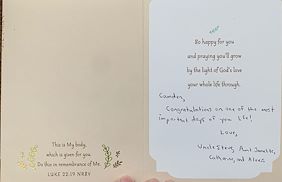 This is My body,
which is given for you.
Do this in remembrance of Me.
LUKE 22:19 NRSV
So happy for you
and praying you'll grow
by the light of God's love
your whole life through.
Camden,
Congratulations on one of the most
important days of your life!
Love,
Uncle Steve, Aunt Janette,
Catherine, and